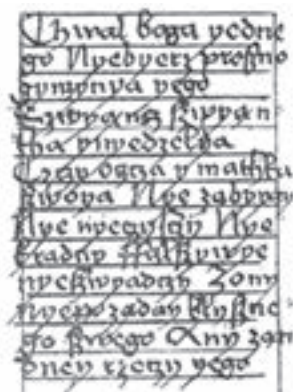 Chwal boga yedne
go Nyebyerz proſno
gymyenya yego
Szwyąthą
tha y nyedzelya
Czczy oycza y mathką
ſzwoyą Nye zabyyay
Nye nyeczyſczy Nye
kradny ffalſzywye
nyeſzwyadczy Zony
nyepozaday blyſne
go ſwego Any zą
dney rzeczy yego